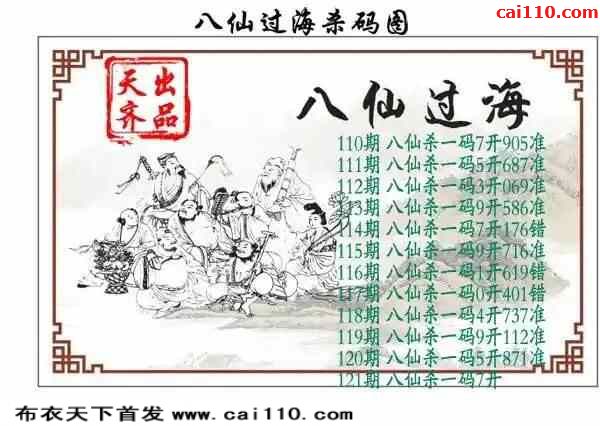 cai110.com
八仙过海杀码图
天齐
出品
八仙过海
110期 八仙杀一码7开905准
111期 八仙杀一码5开687准
112期 八仙杀一码3开069准
113期 八仙杀一码9开586准
114期 八仙杀一码7开176错
115期 八仙杀一码9开716准
116期 八仙杀一码1开619错
117期 八仙杀一码0开401错
118期 八仙杀一码4开737准
119期 八仙杀一码9开112准
120期 八仙杀一码5开871准
121期 八仙杀一码7开
布衣天下首发 www.cai110.com